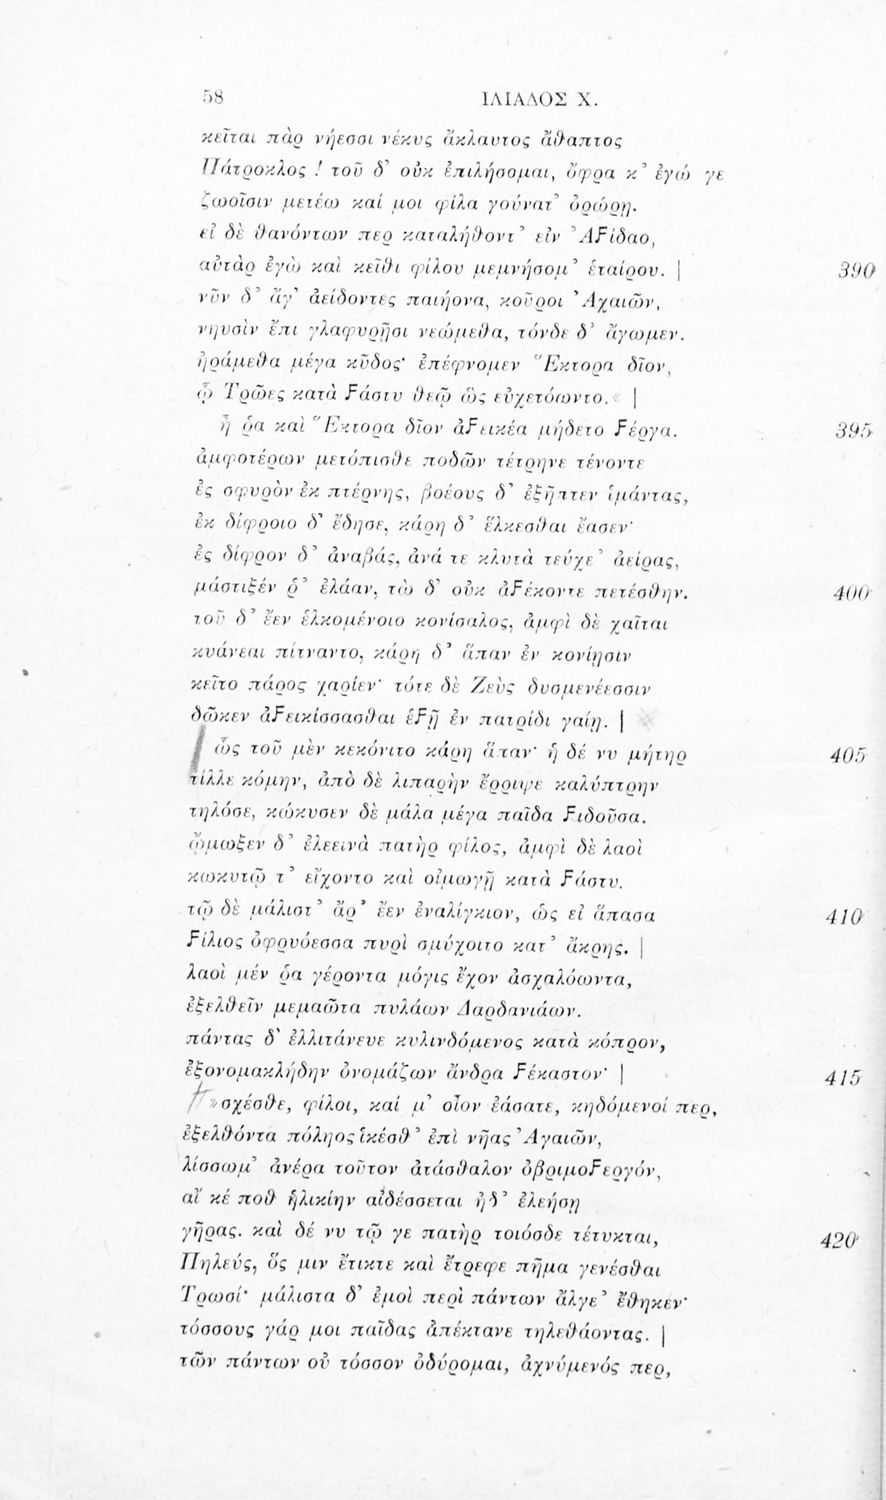 58 ΙΛΙΑΔΟΣ Χ.
κεῖται πὰρ νήεσσι νέκυς ἄκλαυτος ἄθαπτος
Πάτροκλος! τοῦ δ' οὐκ ἐπιλήσομαι, ὄφρα κ' ἐγώ γε
ζωοῖσιν μετέω καί μοι φίλα γούνατ' ὀρώρῃ.
εἰ δὲ θανόντων περ καταλήθοντ' εἰν ἈϜίδαο,
αὐτὰρ ἐγὼ καὶ κεῖθι φίλου μεμνήσομ' ἑταίρου. | 390
νῦν δ' ἄγ' ἀείδοντες παιήονα, κοῦροι Ἀχαιῶν,
νηυσὶν ἔπι γλαφυρῇσι νεώμεθα, τόνδε δ' ἄγωμεν.
ἠράμεθα μέγα κῦδος· ἐπέφνομεν Ἕκτορα δῖον,
ᾧ Τρῶες κατὰ Ϝάστυ θεῷ ὣς εὐχετόωντο.« |
ἦ ῥα καὶ Ἕκτορα δῖον ἀϜεικέα μήδετο Ϝέργα. 395
ἀμφοτέρων μετόπισθε ποδῶν τέτρηνε τένοντε
ἐς σφυρὸν ἐκ πτέρνης, βοέους δ' ἐξῆπτεν ἱμάντας,
ἐκ δίφροιο δ' ἔδησε, κάρη δ' ἕλκεσθαι ἔασεν·
ἐς δίφρον δ' ἀναβάς, ἀνά τε κλυτὰ τεύχε' ἀείρας,
μάστιξέν ῥ' ἐλάαν, τὼ δ' οὐκ ἀϜέκοντε πετέσθην. 400
τοῦ δ' ἔεν ἑλκομένοιο κονίσαλος, ἀμφὶ δὲ χαῖται
κυάνεαι πίτναντο, κάρη δ' ἅπαν ἐν κονίῃσιν
κεῖτο πάρος χαρίεν· τότε δὲ Ζεὺς δυσμενέεσσιν
δῶκεν ἀϜεικίσσασθαι ἑϜῇ ἐν πατρίδι γαίῃ. |
ὣς τοῦ μὲν κεκόνιτο κάρη ἅπαν· ἡ δέ νυ μήτηρ 405
τίλλε κόμην, ἀπὸ δὲ λιπαρὴν ἔρριψε καλύπτρην
τηλόσε, κώκυσεν δὲ μάλα μέγα παῖδα Ϝιδοῦσα.
ᾤμωξεν δ' ἐλεεινὰ πατὴρ φίλος, ἀμφὶ δὲ λαοὶ
κωκυτῷ τ' εἴχοντο καὶ οἰμωγῇ κατὰ Ϝάστυ.
τῷ δὲ μάλιστ' ἄρ' ἔεν ἐναλίγκιον, ὡς εἰ ἅπασα 410
Ϝίλιος ὀφρυόεσσα πυρὶ σμύχοιτο κατ' ἄκρης. |
λαοὶ μέν ῥα γέροντα μόγις ἔχον ἀσχαλόωντα,
ἐξελθεῖν μεμαῶτα πυλάων Δαρδανιάων.
πάντας δ' ἐλλιτάνευε κυλινδόμενος κατὰ κόπρον,
ἐξονομακλήδην ὀνομάζων ἄνδρα Ϝέκαστον· | 415
»σχέσθε, φίλοι, καί μ' οἶον ἐάσατε, κηδόμενοί περ,
ἐξελθόντα πόληος ἱκέσθ' ἐπὶ νῆας Ἀχαιῶν,
λίσσωμ' ἀνέρα τοῦτον ἀτάσθαλον ὀβριμοϜεργόν,
αἴ κέ ποθ' ἡλικίην αἰδέσσεται ἠδ' ἐλεήσῃ
γῆρας. καὶ δέ νυ τῷ γε πατὴρ τοιόσδε τέτυκται, 420
Πηλεύς, ὅς μιν ἔτικτε καὶ ἔτρεφε πῆμα γενέσθαι
Τρωσί· μάλιστα δ' ἐμοὶ περὶ πάντων ἄλγε' ἔθηκεν·
τόσσους γάρ μοι παῖδας ἀπέκτανε τηλεθάοντας. |
τῶν πάντων οὐ τόσσον ὀδύρομαι, ἀχνύμενός περ,